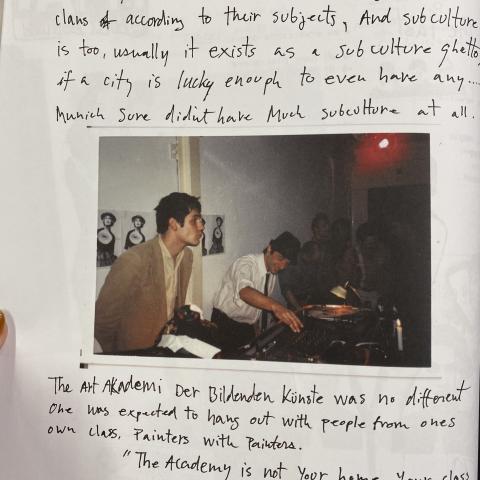 clans according to their subjects, And subculture
is too, usually it exists as a subculture ghetto
if a city is lucky enough to even have any....
Munich Sure didin't have Much subculture at all.
The Art AKademi Der Bildenden Künste was no different
One was expected to hang out with people from ones
own class, Painters with Painters.
"The Academy is not Your home, Your class